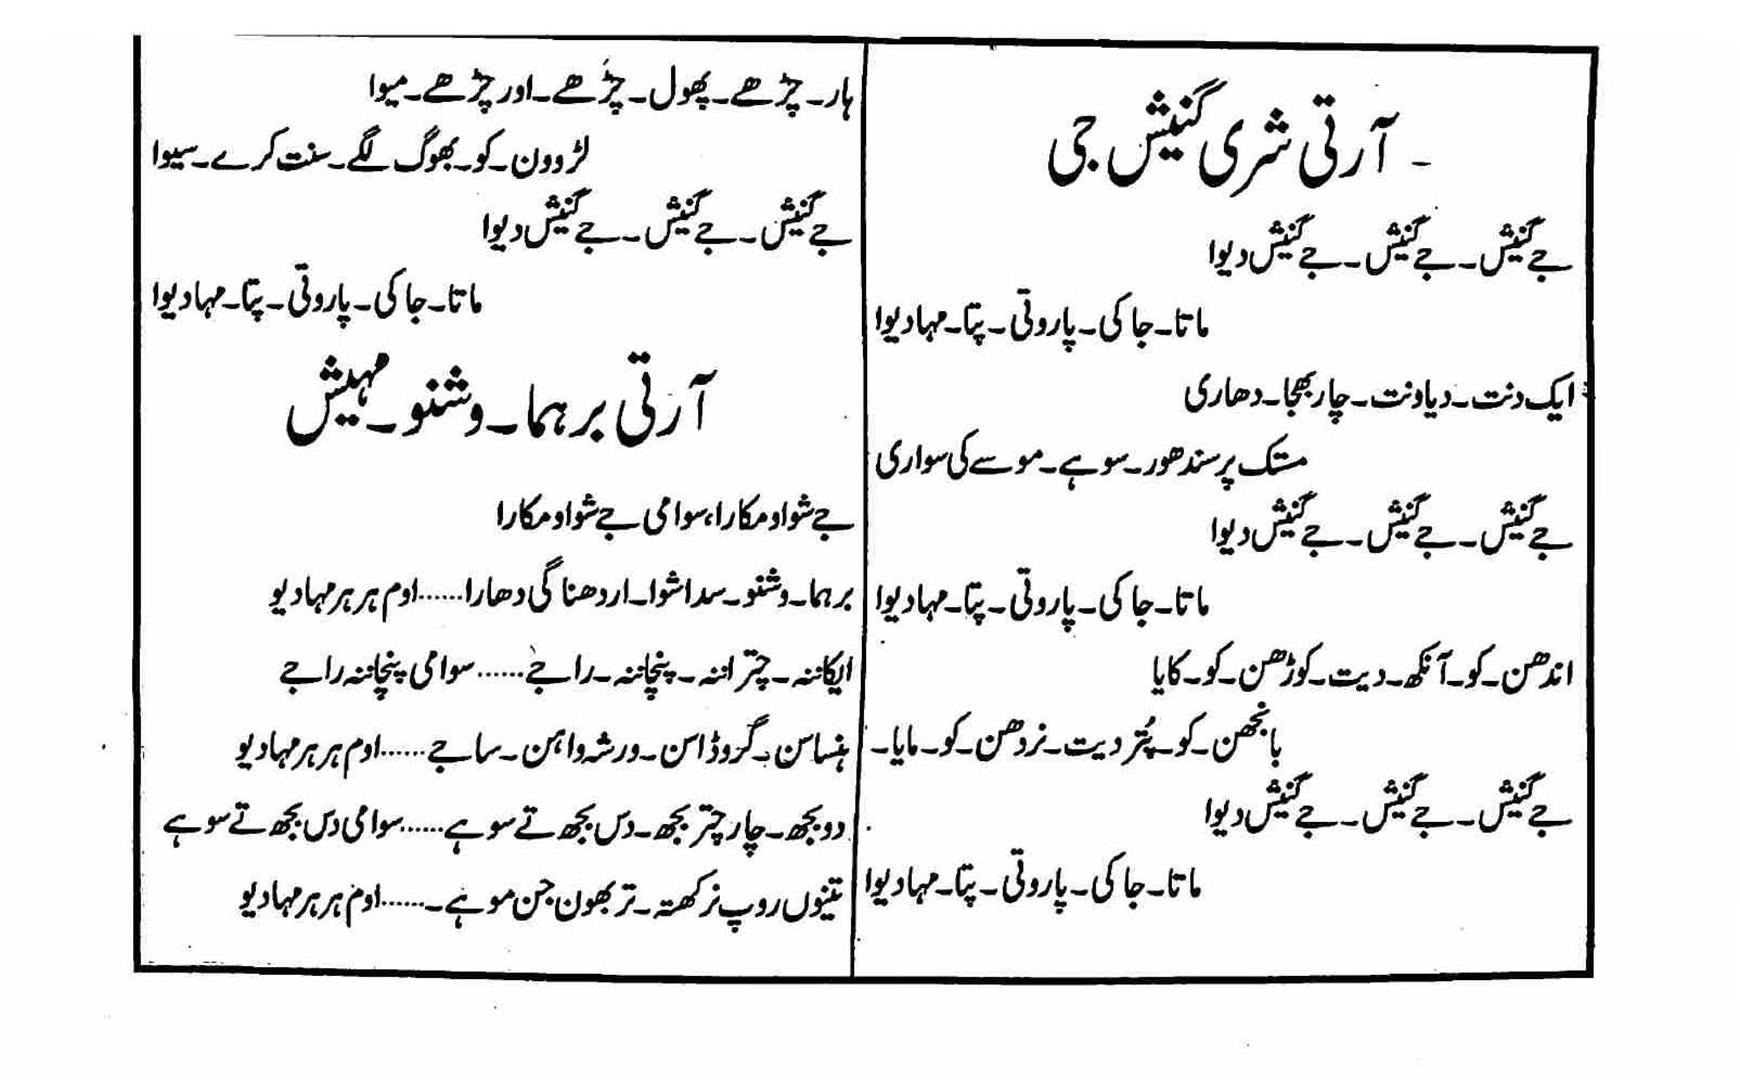 ۔ آرتی شری گنیش جی
جے گنیش۔جے گنیش۔جے گنیش دیوا
ماتا۔جاکی۔پاروتی۔پتا۔مہادیوا
ایک دنت۔دیاونت۔چار بھجا۔دھاری
مستک پر سندھور۔سوہے۔موسے کی سواری
جے گنیش۔جے گنیش۔جے گنیش دیوا
ماتا۔جاکی۔پاروتی۔پتا۔مہادیوا
اندھن۔کو۔آنکھ۔دیت۔کوڑھن۔کو۔کایا
بانجھن۔کو۔پُتر دیت۔نردھن۔کو۔مایا۔
جے گنیش۔جے گنیش۔جے گنیش دیوا
ماتا۔جاکی۔پاروتی۔پتا۔مہادیوا
ہار۔چڑھے۔پھول۔چڑھے۔اور چڑھے۔میوا
لڑوون۔کو۔بھوگ لگے۔سنت کرے۔سیوا
جے گنیش۔جے گنیش۔جے گنیش دیوا
ماتا۔جاکی۔پاروتی۔پتا۔مہادیوا
آرتی برہما۔وشنو۔مہیش
جے شواومکارا،سوامی جے شواومکارا
برہما۔وشنو۔سداشوا۔اردھناگی دھارا......اوم ہر ہر مہادیو
ایکاننہ۔چتراننہ۔پنچاننہ۔راجے......سوامی پنچاننہ راجے
ہنساسن۔گروڈاسن۔ورشہ واہن۔ساجے......اوم ہر ہر مہادیو
دوبجھ۔چار چتر بجھ۔دس بجھ تے سوہے......سوامی دس بجھ تے سوہے
تینوں روپ نرکھتہ۔تربھون جن موہے۔......اوم ہر ہر مہادیو